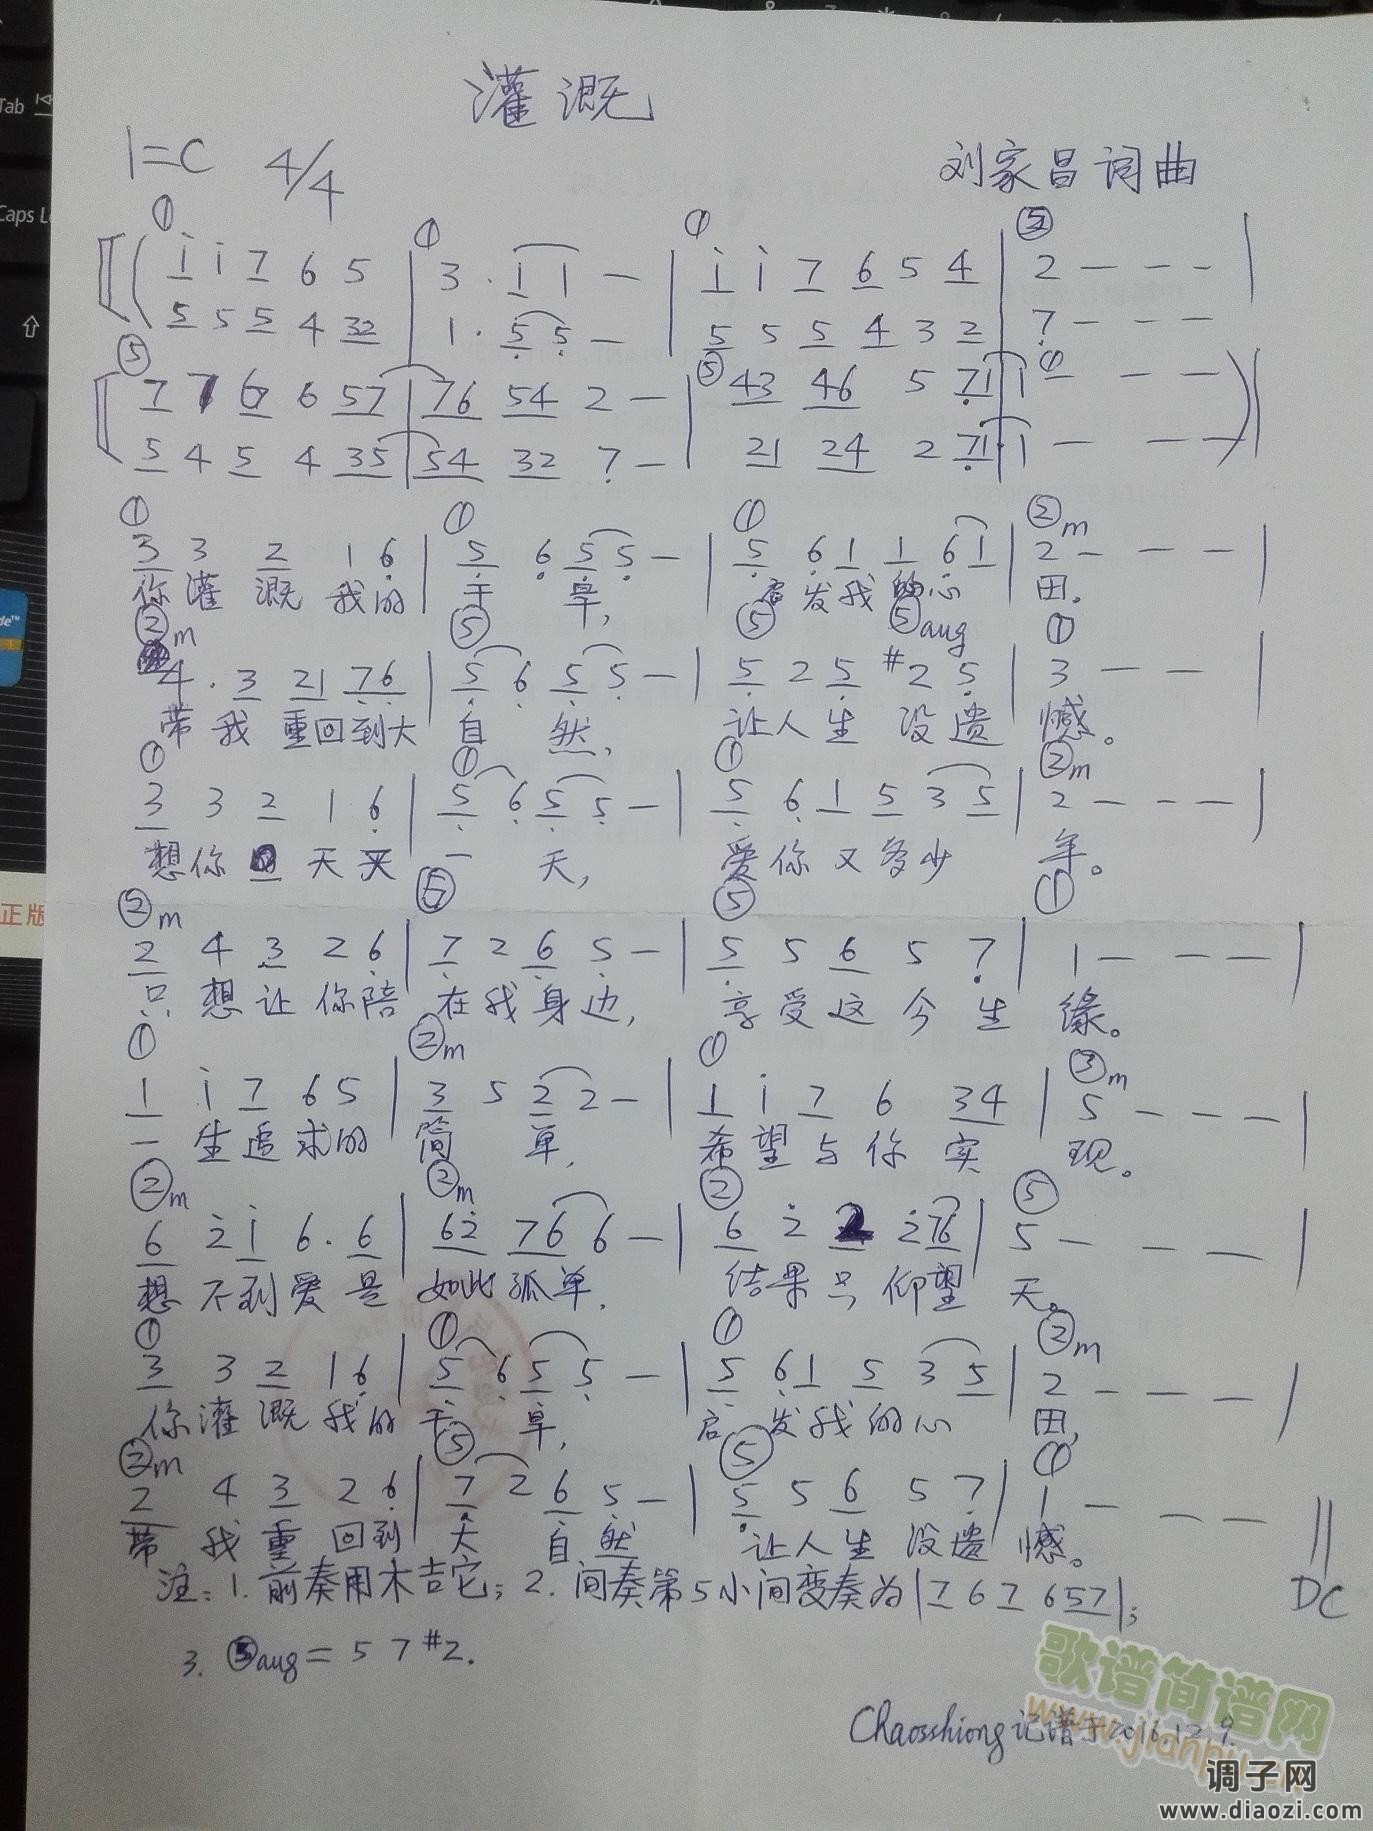 灌溉
1=C 4/4
刘家昌词曲
① ① ① ⑤
1 1 7 6 5 | 3 · 1 1 — | 1 1 7 6 5 4 | 2 — — — |
5 5 5 4 32 | 1 · 5 5 — | 5 5 5 4 3 2 | 7 — — —
⑤ ⑤ ①
7 7 6 6 57 | 76 54 2 — | 43 46 5 71 | 1 — — — ) |
5 4 5 4 35 | 54 32 7 — | 21 24 2 71 | 1 — — —
① ① ① ②m
3 3 2 1 6 | 5 6 5 5 — | 5 6 1 1 6 1 | 2 — — — |
你灌溉我的干旱, 启发我的心田。
②m ⑤ ⑤ ⑤aug ①
4 · 3 21 76 | 5 6 5 5 — | 5 2 5 #2 5 | 3 — — — |
带我重回到大自然, 让人生没遗憾。
① ① ① ②m
3 3 2 1 6 | 5 6 5 5 — | 5 6 1 5 3 5 | 2 — — — |
想你 天天一天, 爱你又多少年。
②m ⑤ ⑤ ①
2 4 3 2 6 | 7 2 6 5 — | 5 5 6 5 7 | 1 — — — |
只想让你陪在我身边, 享受这今生缘。
① ②m ① ③m
1 1 7 6 5 | 3 5 2 2 — | 1 1 7 6 34 | 5 — — — |
一生追求的简单, 希望与你实现。
②m ②m ② ⑤
6 2 1 6 · 6 | 62 76 6 — | 6 2 2 2 76 | 5 — — — |
想不到爱是如此孤单, 结果只仰望天。
① ① ① ②m
3 3 2 1 6 | 5 6 5 5 — | 5 6 1 5 3 5 | 2 — — — |
你灌溉我的干旱, 启发我的心田,
②m ⑤ ⑤ ①
2 4 3 2 6 | 7 2 6 5 — | 5 5 6 5 7 | 1 — — — ||
带我重回到大自然 让人生没遗憾。
注: 1. 前奏用木吉它; 2. 间奏第5小间变奏为 | 7 6 7 6 57 | ;
DC
3. ⑤aug = 5 7 #2.
Chaosshiong记谱于2016.12.9.
歌谱简谱网
www.jianpu.cn
调子网
www.diaozi.com
Tab
Caps L
正版